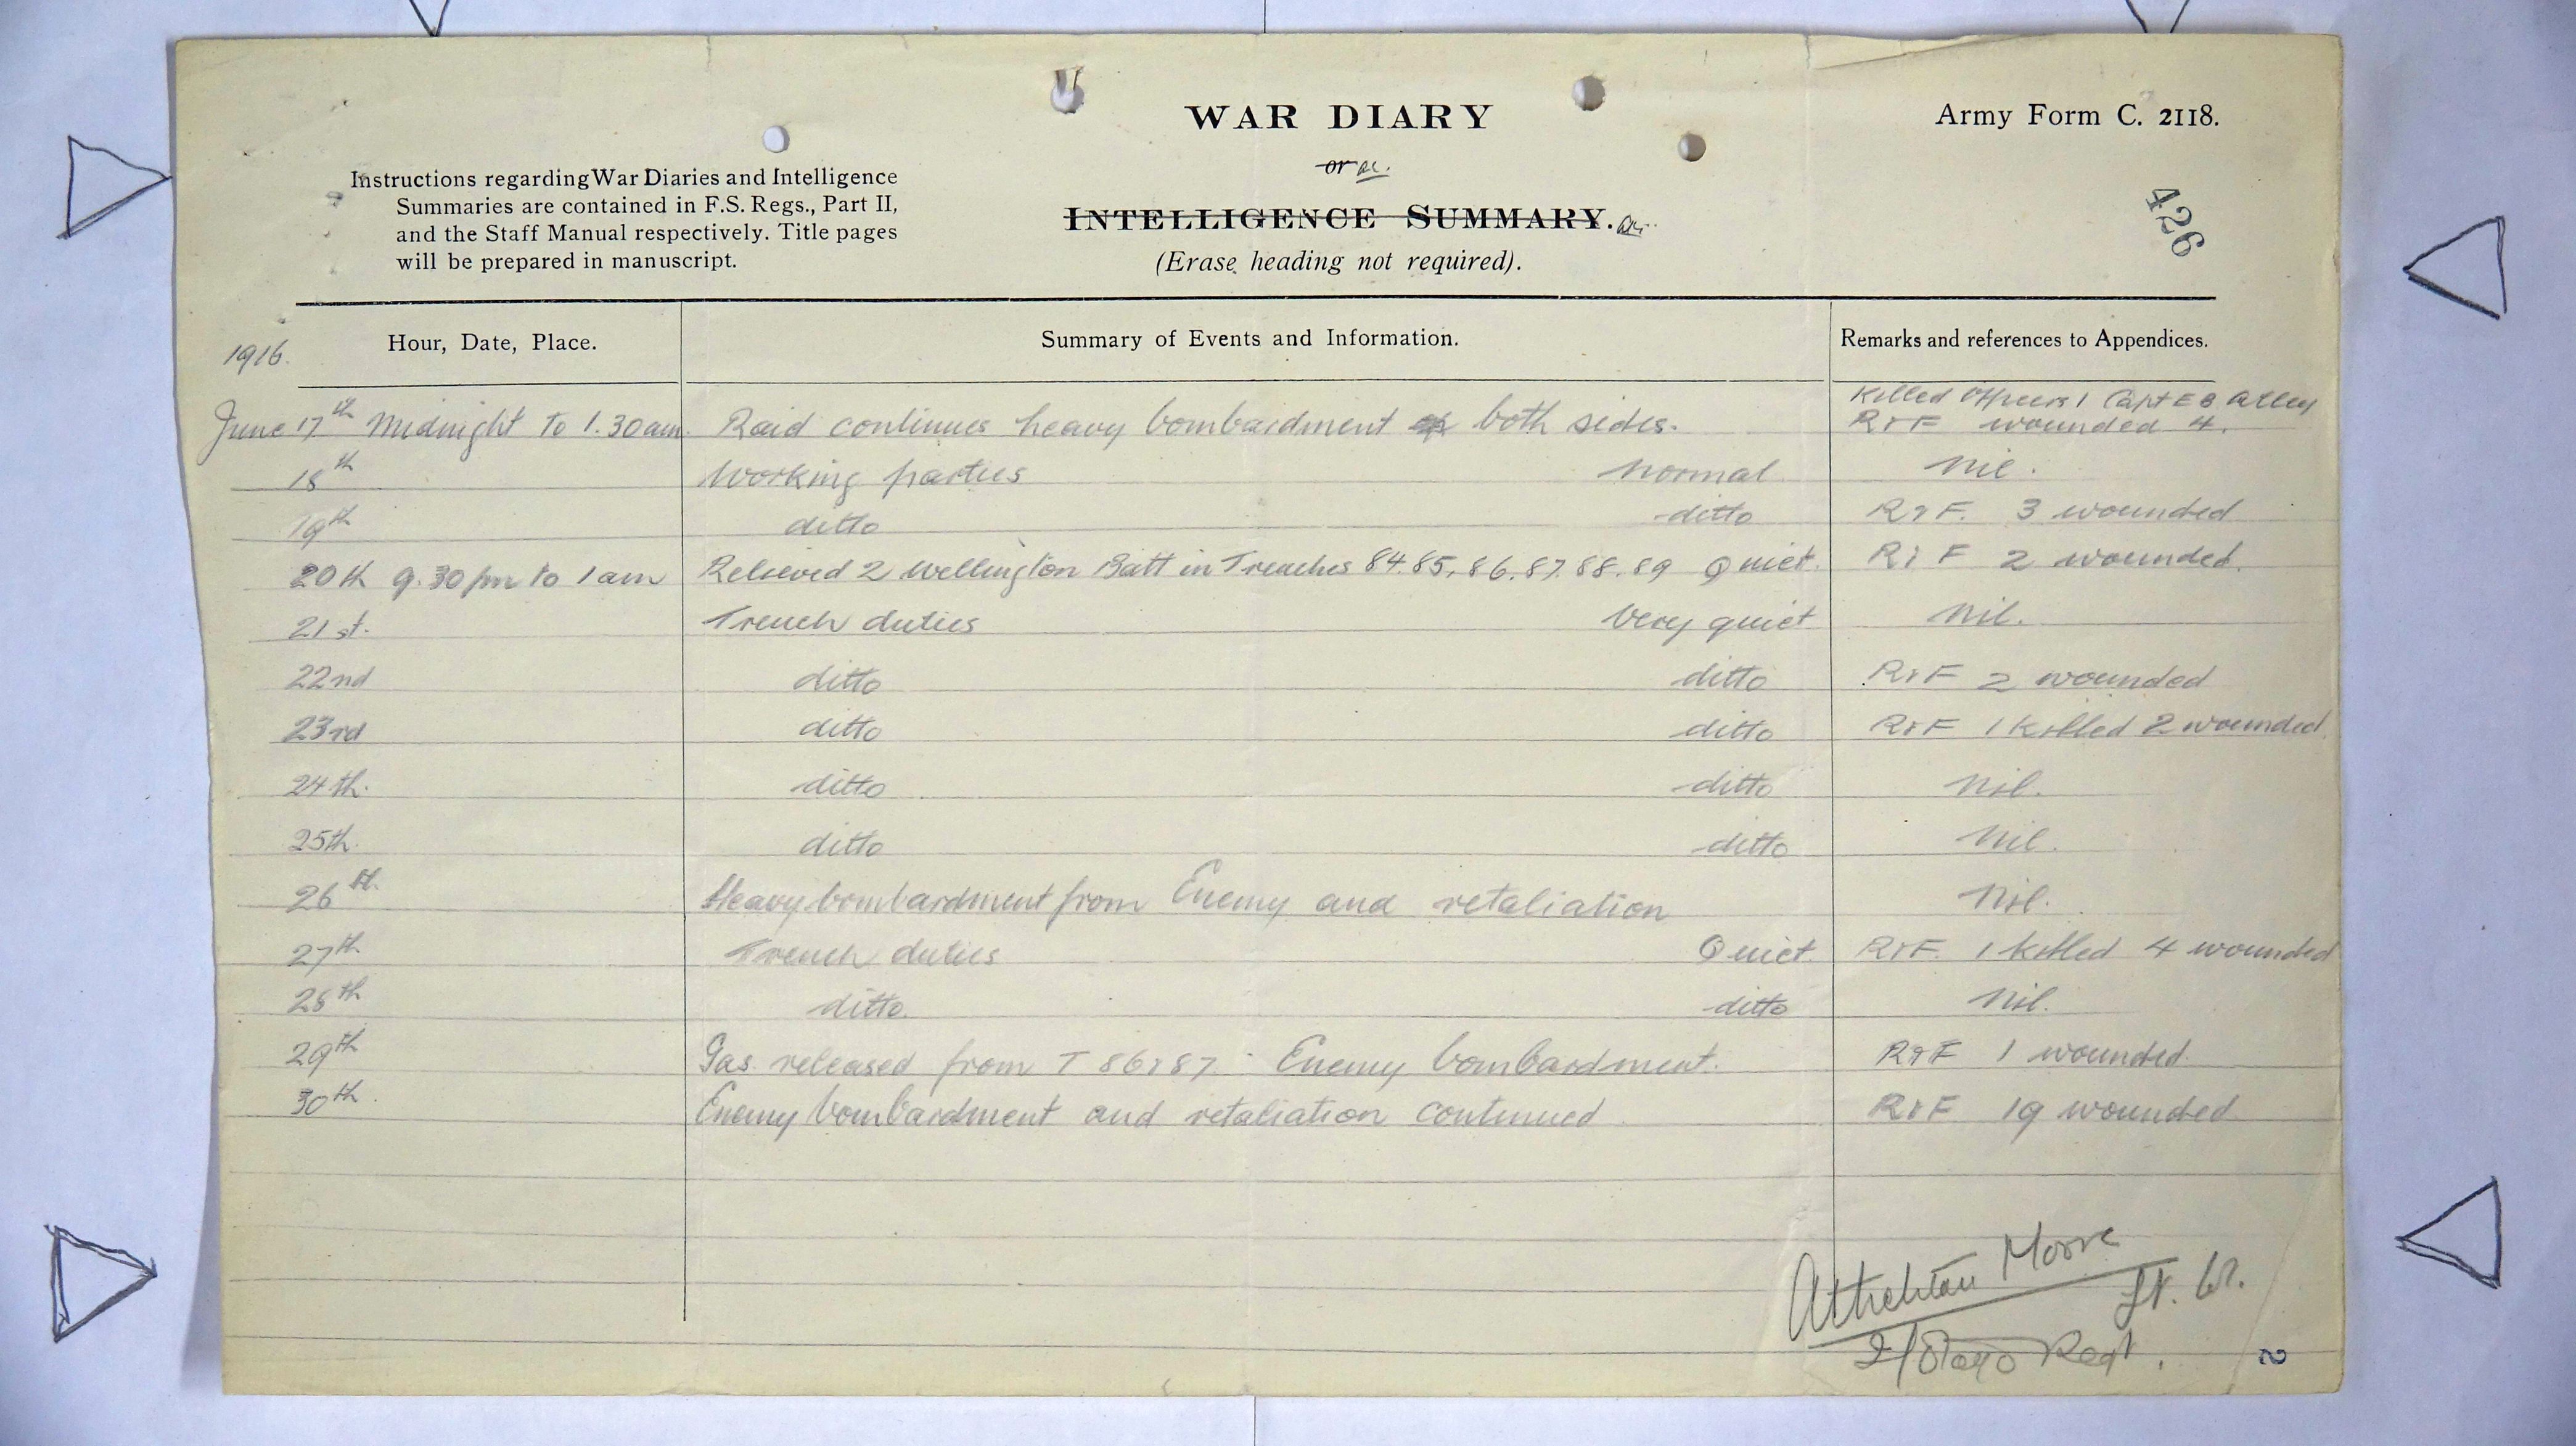 WAR DIARY
Army Form C. 2118.
or
INTELLIGENCE SUMMARY.
(Erase heading not required).
426
Instructions regarding War Diaries and Intelligence
Summaries are contained in F.S. Regs., Part II,
and the Staff Manual respectively. Title pages
will be prepared in manuscript.
1916.
Hour, Date, Place. Summary of Events and Information. Remarks and references to Appendices.
June 17th Midnight to 1.30am. Raid continues heavy bombardment both sides. Killed Officers 1 Capt E B Alley
R&F wounded 4.
18th Working parties normal Nil.
19th ditto ditto R&F. 3 wounded
20th 9.30pm to 1am Relieved 2 Wellington Batt in Trenches 84.85,86.87.88.89 Quiet. R&F 2 wounded.
21st. Trench duties Very quiet Nil.
22nd ditto ditto R&F 2 wounded
23rd ditto ditto R&F 1 killed 2 wounded.
24th. ditto ditto Nil.
25th. ditto ditto Nil.
26th. Heavy bombardment from Enemy and retaliation Nil.
27th Trench duties Quiet. R&F. 1 killed 4 wounded
28th ditto. ditto Nil.
29th Gas released from T 86&87. Enemy bombardment. R&F 1 wounded.
30th. Enemy bombardment and retaliation continued R&F 19 wounded
Moore
Lt. Col.
2/Otago Regt.
2